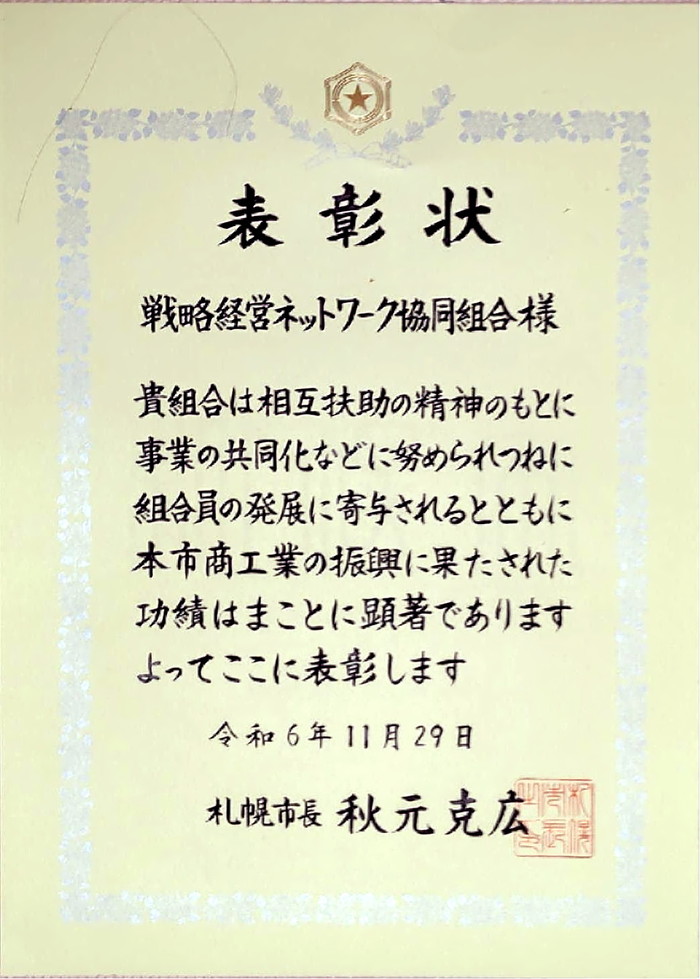 表彰状
戦略経営ネットワーク協同組合様
貴組合は相互扶助の精神のもとに
事業の共同化などに努められつねに
組合員の発展に寄与されるとともに
本市商工業の振興に果たされた
功績はまことに顕著であります
よってここに表彰します
令和6年11月29日
札幌市長 秋元克広